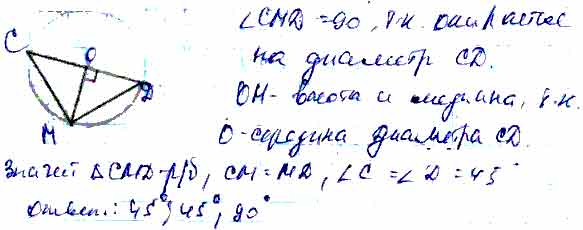 ∠CMD = 90, т.к. опирается
на диаметр CD.
OM - высота и медиана, т.к.
O - середина диаметра CD.
Значит △CMD - р/б, CM = MD, ∠C = ∠D = 45°
Ответ: 45°, 45°, 90°
C
O
D
M